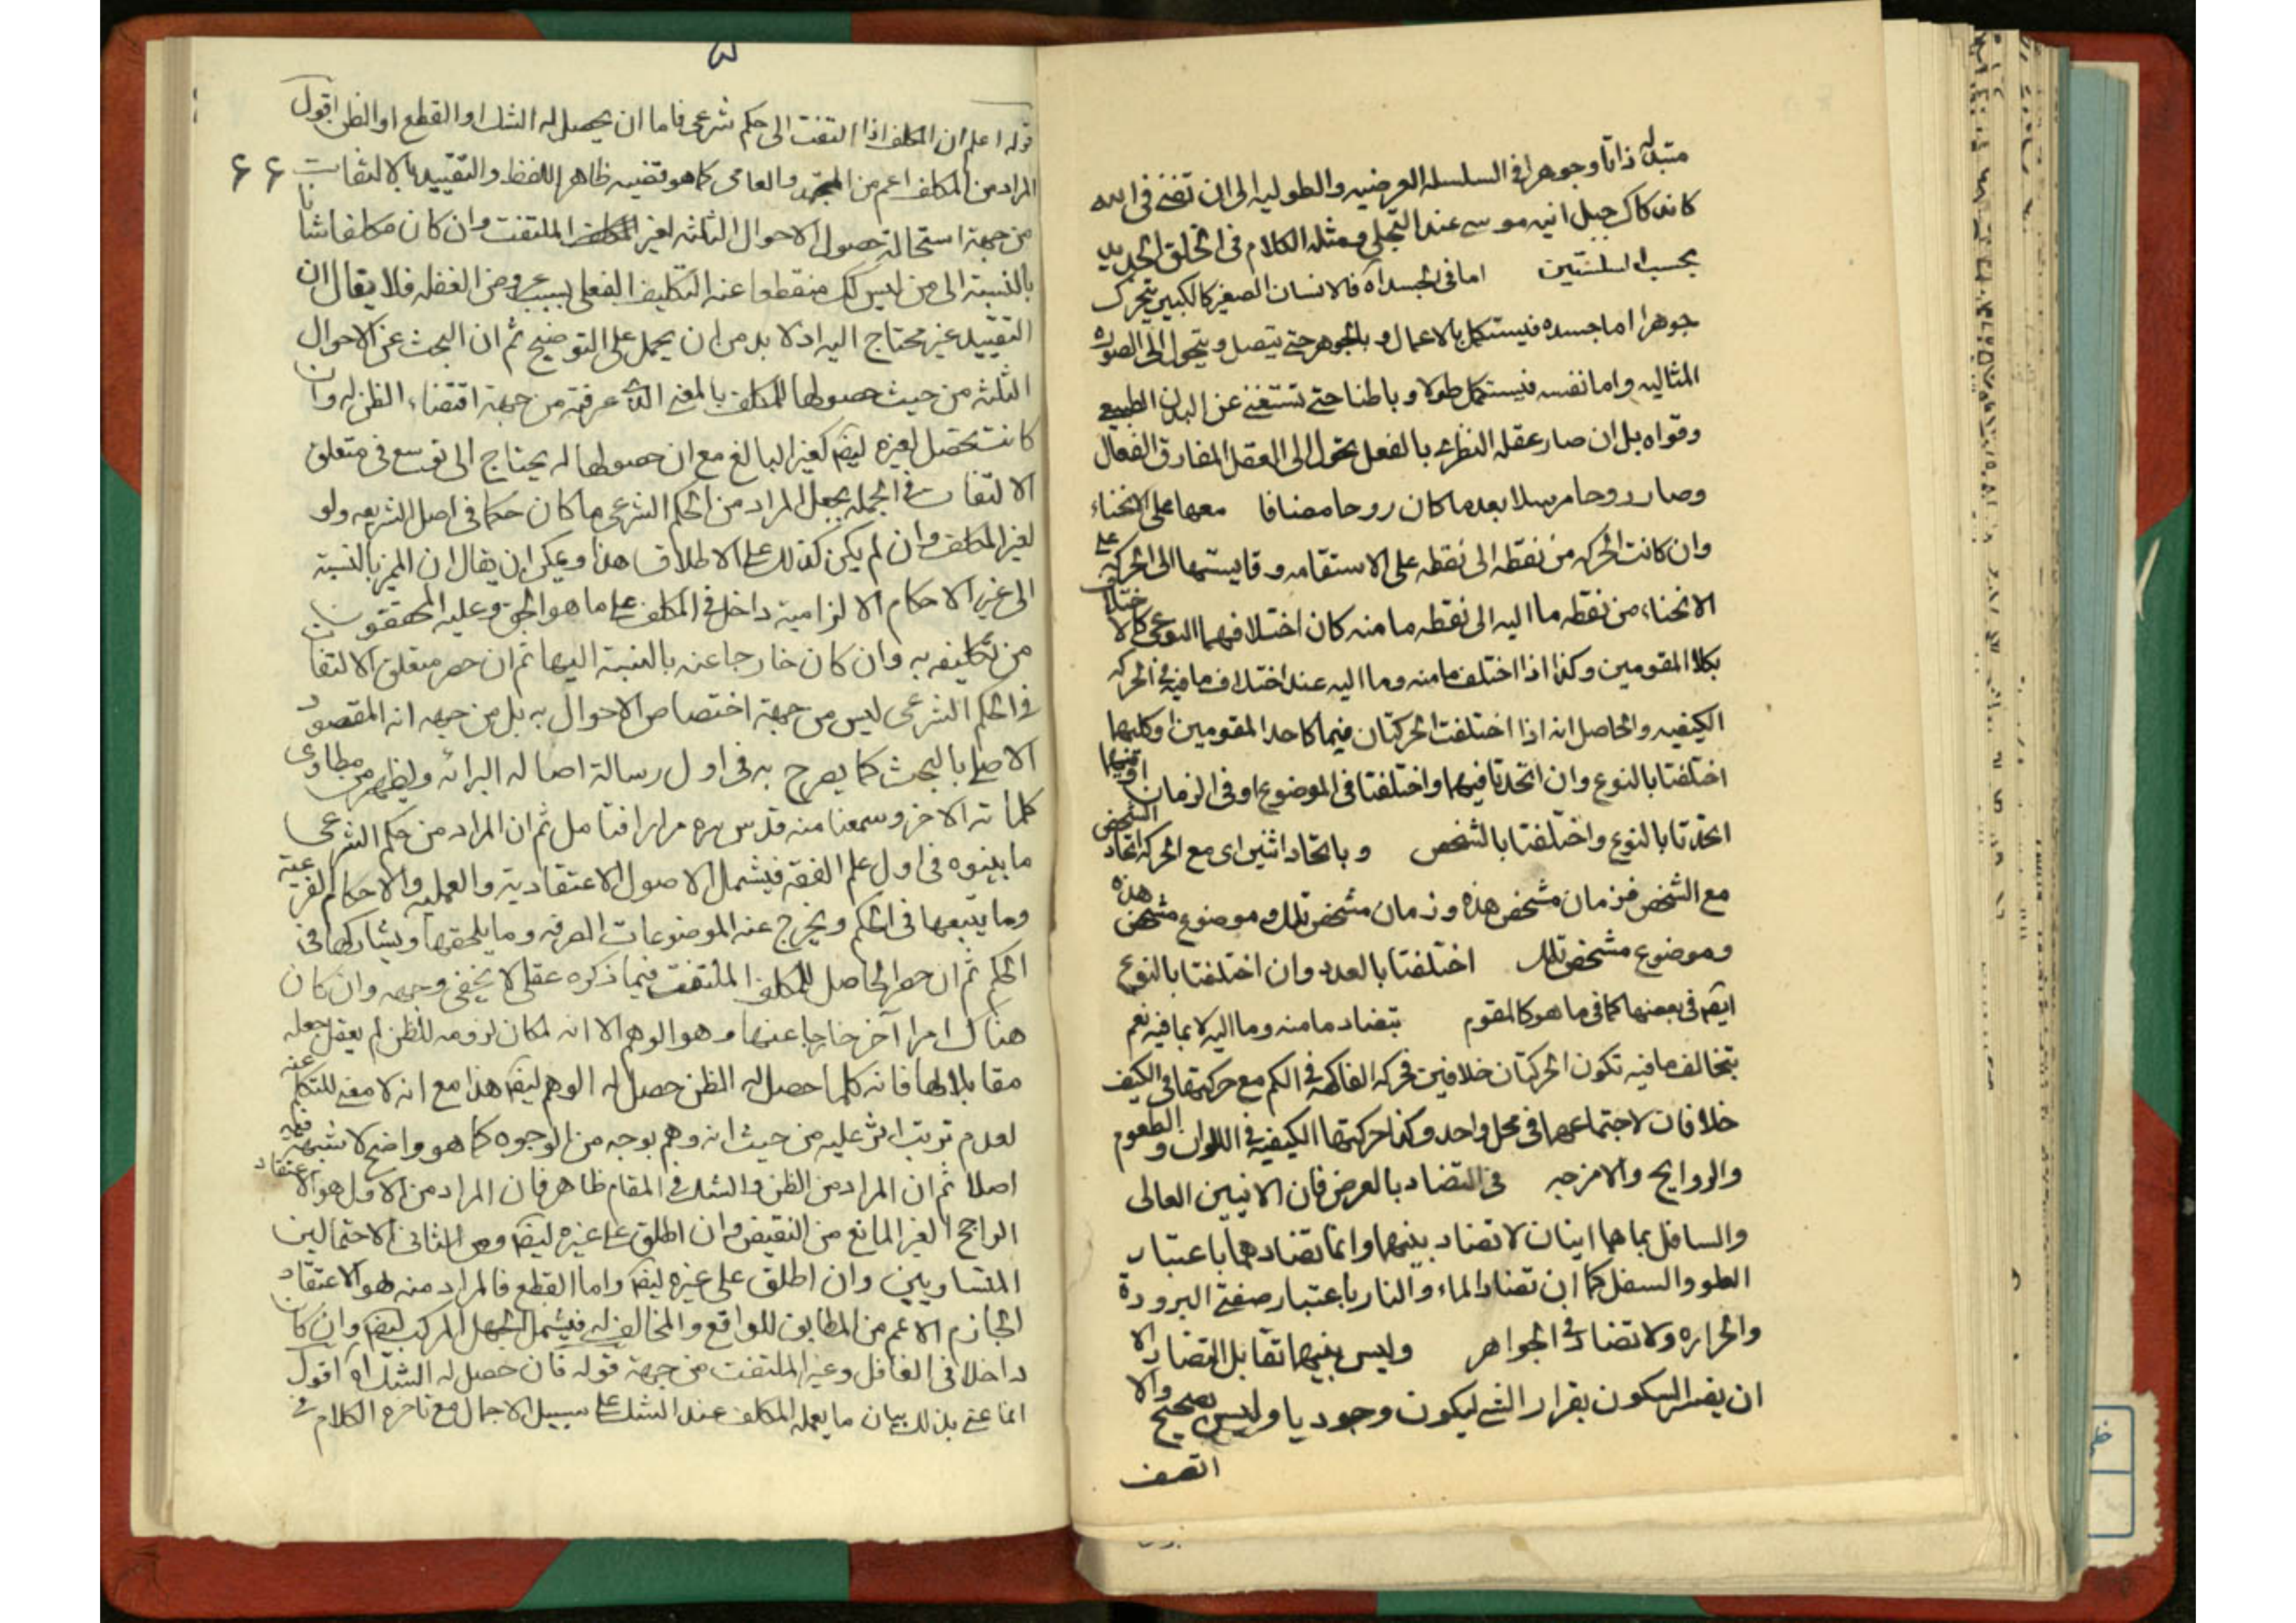 متبدله ذاتا وجوهرا فى السلسله العرضيه والطوليه الى ان تفنى فى الله
كاندكاك جبل انيه موسى عند التجلى ومثله الكلام فى الخلق الجديد
بحسب السلسلتين اما فى الجسد اه فالانسان الصغير كالكبير يتحرك
جوهرا اما جسده فيستكمل بالاعمال و بالجوهر حتى يتصل و يتحول الى الصوره
المثاليه واما نفسه فيستكمل طولا و باطنا حتى تستغنى عن البدن الطبيعى
وقواه بل ان صار عقله النظرى بالفعل تحول الى العقل المفارق الفعال
وصار روحا مرسلا بعد ما كان روحا مضافا معها على الانحناء
وان كانت الحركه من نقطه الى نقطه على الاستقامه و قايستها الى الحركه على
الانحناء من نقطه ما اليه الى نقطه ما منه كان اختلافهما النوعى كالاختلاف
بكلا المقومين وكذا اذا اختلف ما منه وما اليه عند اختلاف ما فيه فى الحركه
الكيفيه والحاصل انه اذا اختلفت الحركتان فيما كاحد المقومين او كليهما
اختلفتا بالنوع وان اتحدتا فيهما واختلفتا فى الموضوع او فى الزمان او فيهما
اتحدتا بالنوع واختلفتا بالشخص و باتحاد اثنين اى مع الحركه اتحاد الشخص
مع الشخص فزمان مشخص هذه و زمان مشخص تلك و موضوع مشخص هذه
وموضوع مشخص تلك اختلفتا بالعدد وان اختلفتا بالنوع
ايضا فى بعضها كما فى ما هو كالمقوم بتضاد ما منه وما اليه لا بما فيه نعم
بتخالف ما فيه تكون الحركتان خلافين فحركه الفاكهه فى الكم مع حركتها فى الكيف
خلافان لاجتماعهما فى محل واحد وكذا حركتها الكيفيه فى اللوان و الطعوم
والروايح والامزجه فى التضاد بالعرض فان الاينين العالى
والسافل بما هما اينان لا تضاد بينهما وانما تضادهما باعتبار
العلو والسفل كما ان تضاد الماء والنار باعتبار صفتى البرودة
والحراره ولا تضاد فى الجواهر وليس بينهما تقابل التضاد الا
ان يفسر السكون بقرار الشئ ليكون وجوديا وليس بصحيح والا
اتصف
قوله اعلم ان المكلف اذا التفت الى حكم شرعى فاما ان يحصل له الشك او القطع او الظن اقول
المراد من المكلف اعم من المجتهد والعامى كما هو قضيه ظاهر اللفظ والتقييد بالالتفات
۶۶
من جهة استحالة حصول الاحوال الثلثه لغير الملتفت وان كان مكلفا شانا
بالنسبة الى من ليس كك منقطعا عنه التكليف الفعلى بسبب عروض الغفله فلا يقال ان
التقييد غير محتاج اليه اذ لا بد من ان يحمل على التوضيح ثم ان البحث عن الاحوال
الثلثه من حيث حصولها للمكلف بالمعنى الذى عرفته من جهة اقتضاء الظن له وان
كانت تحصل لغيره ايضا كغير البالغ مع ان حصولها له يحتاج الى توسع فى متعلق
الالتفات فى الجمله بجعل المراد من الحكم الشرعى ما كان حكما فى اصل الشريعه ولو
لغير المكلف وان لم يكن كذلك على الاطلاق هذا و يمكن ان يقال ان المميز بالنسبة
الى غير الاحكام الالزامية داخل فى المكلف على ما هو الحق وعليه المحققون
من تكليفه به وان كان خارجا عنه بالنسبة اليها ثم ان حصر متعلق الالتفات
فى الحكم الشرعى ليس من جهة اختصاص الاحوال به بل من جهه انه المقصود
الاصلى بالبحث كما يصرح به فى اول رسالة اصاله البرائه ويظهر من مطاوى
كلماته الاخر وسمعنا منه قدس سره مرارا فتامل ثم ان المراد من حكم الشرعى
ما بينوه فى اول علم الفقه فيشمل الاصول الاعتقادية والعمليه والاحكام الفرعية
وما يتبعها فى الحكم ويخرج عنه الموضوعات الصرفه وما يلحقها ويشاركها فى
الحكم ثم ان حصر الحاصل للمكلف الملتفت فيما ذكره عقلى لا يخفى وجهه وان كان
هناك امرا آخر خارجا عنها وهو الوهم الا انه لمكان لزومه للظن لم يعقل جعله
مقابلا لها فانه كلما حصل له الظن حصل له الوهم ايضا هذا مع انه لا معنى للتكلم عنه
لعدم ترتب اثر عليه من حيث انه وهم بوجه من الوجوه كما هو واضح لا شبهه فيه
اصلا ثم ان المراد من الظن والشك فى المقام ظاهر فان المراد من الاول هو الاعتقاد
الراجح الغير المانع من النقيض وان اطلق على غيره ايضا ومن الثانى الاحتمالين
المتساويين وان اطلق على غيره ايضا واما القطع فالمراد منه هو الاعتقاد
الجازم الاعم من المطابق للواقع والمخالف له فيشمل الجهل المركب ايضا وان كان
داخلا فى الغافل وغير الملتفت من جهة قوله فان حصل له الشك اه اقول
انما عنى بذلك بيان ما يعمله المكلف عند الشك على سبيل الاجمال مع تاخره الكلام فى